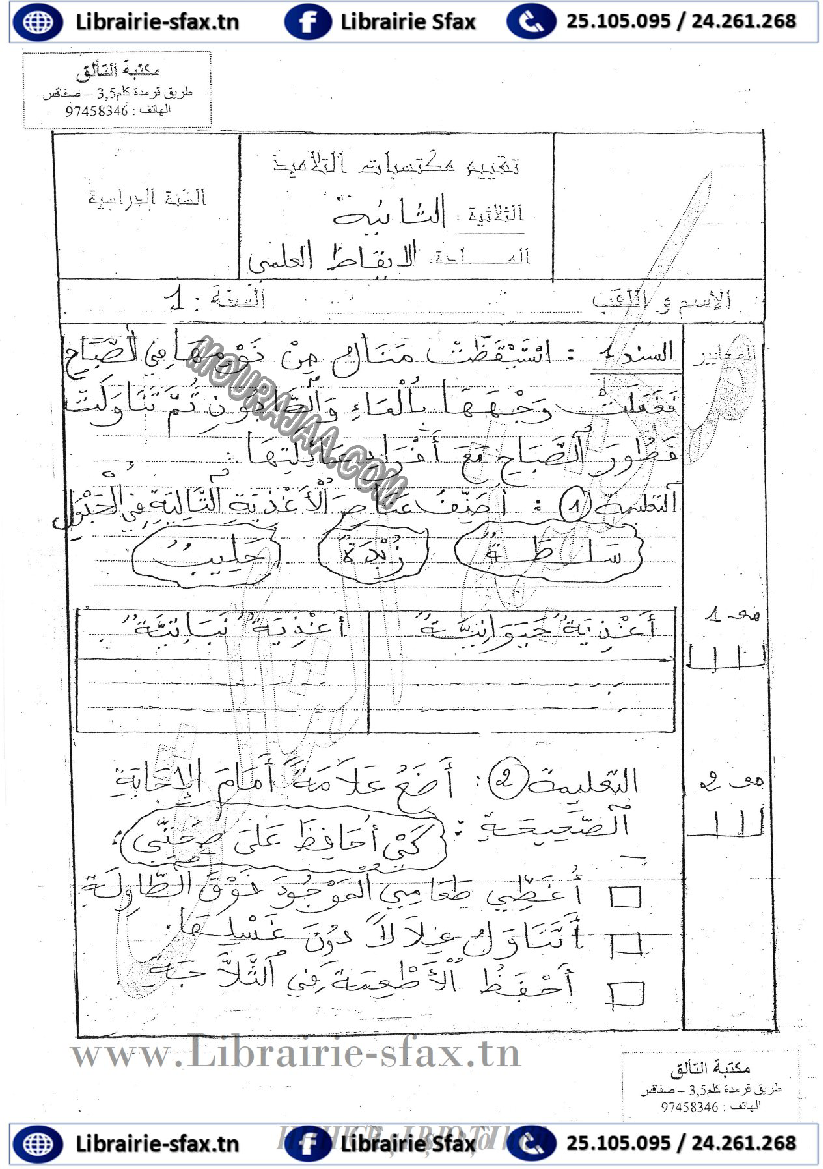 Librairie-sfax.tn Librairie Sfax 25.105.095 / 24.261.268
مكتبة التألق
طريق قرمدة كلم3,5 – صفاقس
الهاتف : 97458346
تقييم مكتسبات التلاميذ
الثلاثية: الثانية
المـــادة: الايقاظ العلمي
السنة الدراسية
الإسم و اللقب
السنة : 1
المعايير
السند1 : اسْتَيْقَظَتْ مَنَالُ مِنْ نَوْمِهَا فِي الصَّبَاحِ
فَغَسَلَتْ وَجْهَهَا بِالْمَاءِ وَالصَّابُونِ ثُمَّ تَنَاوَلَتْ
فَطُورَ الصَّبَاحِ مَعَ أَفْرَادِ عَائِلَتِهَا.
التعليمة 1 : أُصَنِّفُ عَنَاصِرَ الْأَغْذِيَةِ التَّالِيَةِ فِي الْجَدْوَلِ
سَلَطَةٌ زُبْدَةٌ حَلِيبٌ
مع 1
أَغْذِيَةٌ حَيَوَانِيَّةٌ أَغْذِيَةٌ نَبَاتِيَّةٌ
مع 2
التعليمة 2 : أَضَعُ عَلَامَةً أَمَامَ الإِجَابَةِ
الصَّحِيحَةِ :
كَيْ أُحَافِظَ عَلَى صِحَّتِي :
أُغَطِّي طَعَامِي الْمَوْجُودَ فَوْقَ الطَّاوِلَةِ
أَتَنَاوَلُ غِلَالاً دُونَ غَسْلِهَا.
أَحْفَظُ الْأَطْعِمَةَ فِي الثَّلَّاجَةِ
MOURAJAA.COM
www.Librairie-sfax.tn
مكتبة التألق
طريق قرمدة كلم3,5 – صفاقس
الهاتف : 97458346
Librairie-sfax.tn Librairie Sfax 25.105.095 / 24.261.268